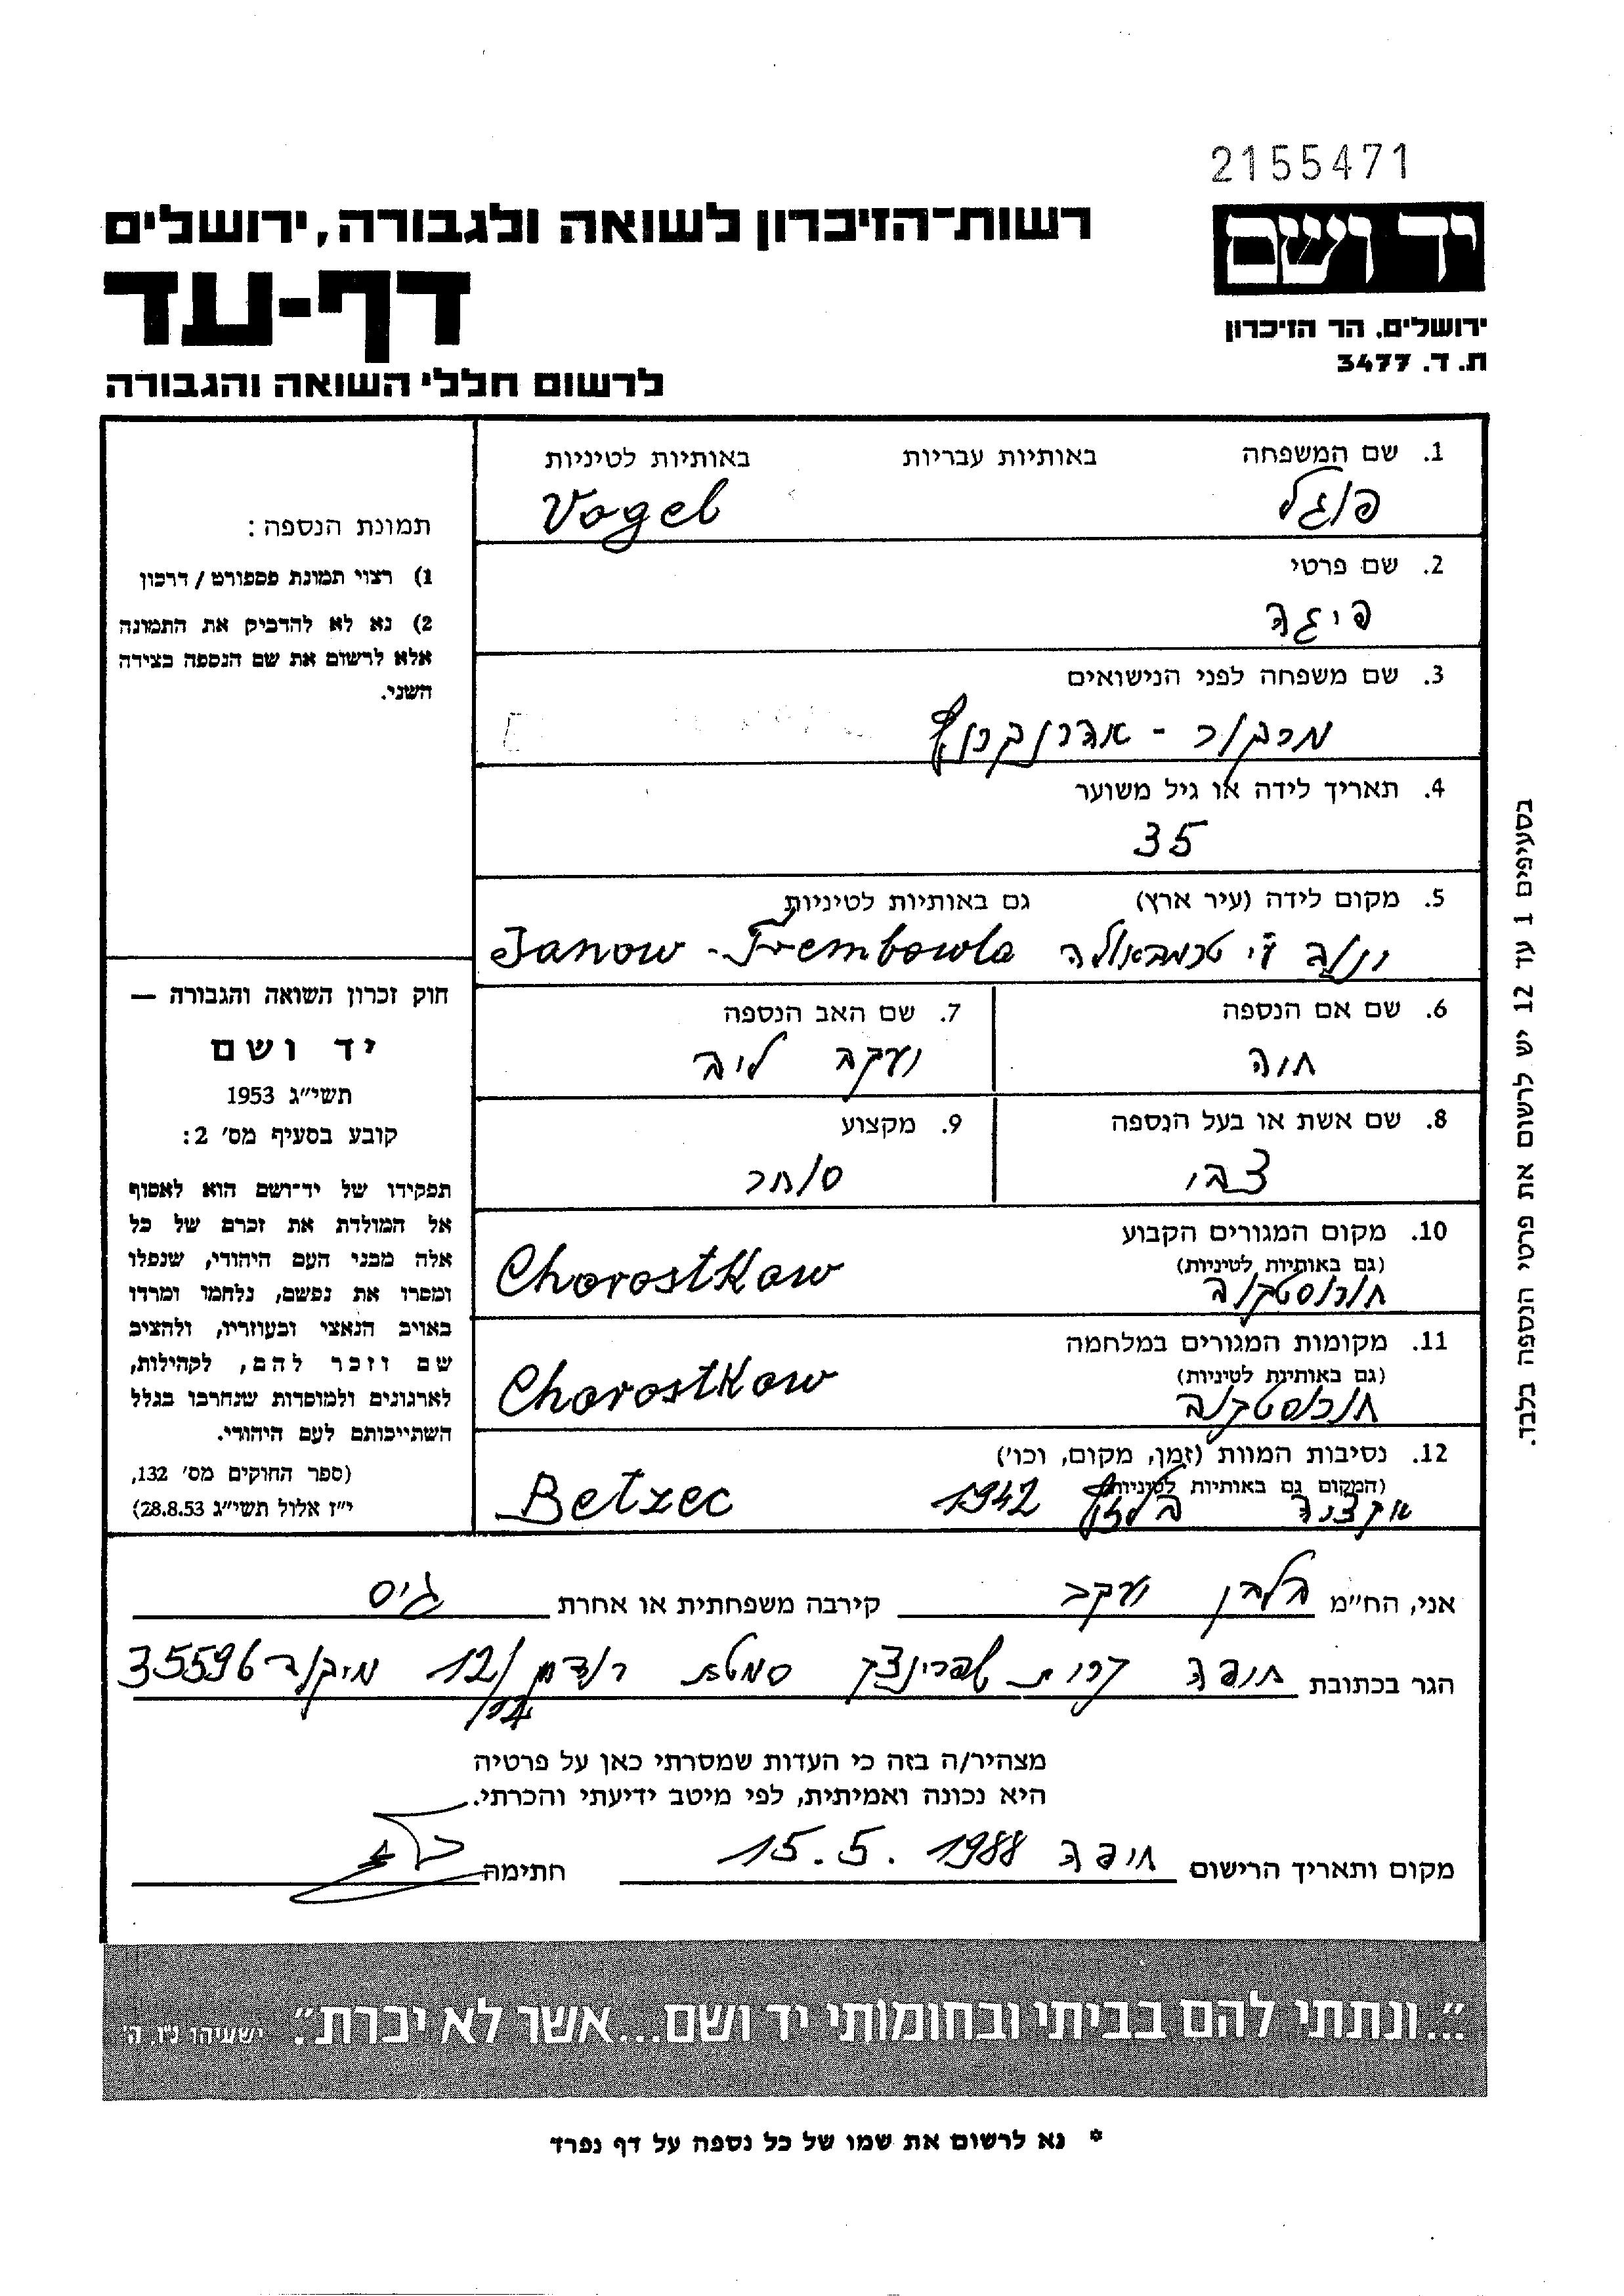 2155471
יד ושם
ירושלים. הר הזיכרון
ת. ד. 3477
רשות־הזיכרון לשואה ולגבורה, ירושלים
דף-עד
לרשום חללי השואה והגבורה
1. שם המשפחה באותיות עבריות באותיות לטיניות
פוגל Vogel
2. שם פרטי
פיגה
3. שם משפחה לפני הנישואים
מרקור - אהרונקרויץ
4. תאריך לידה או גיל משוער
35
5. מקום לידה (עיר ארץ) גם באותיות לטיניות
ינוב טרמבאולה Janow - Trembowla
6. שם אם הנספה
חוה
7. שם האב הנספה
יעקב ליב
8. שם אשת או בעל הנספה
צבי
9. מקצוע
סוחר
10. מקום המגורים הקבוע
(גם באותיות לטיניות)
חורוסטקוב Chorostkow
11. מקומות המגורים במלחמה
(גם באותיות לטיניות)
חורוסטקוב Chorostkow
12. נסיבות המוות (זמן, מקום, וכו')
(המקום גם באותיות לטיניות)
אקציה בלזץ 1942 Betzec
תמונת הנספה:
1) רצוי תמונת פספורט / דרכון
2) נא לא להדביק את התמונה
אלא לרשום את שם הנספה בצידה
השני.
חוק זכרון השואה והגבורה —
יד ושם
תשי"ג 1953
קובע בסעיף מס' 2:
תפקידו של יד־ושם הוא לאסוף
אל המולדת את זכרם של כל
אלה מבני העם היהודי, שנפלו
ומסרו את נפשם, נלחמו ומרדו
באויב הנאצי ובעוזריו, ולהציב
שם וזכר להם, לקהילות,
לארגונים ולמוסדות שנחרבו בגלל
השתייכותם לעם היהודי.
(ספר החוקים מס' 132,
י"ז אלול תשי"ג 28.8.53)
בסעיפים 1 עד 12 יש לרשום את פרטי הנספה בלבד.
אני, הח"מ בלבן יעקב קירבה משפחתית או אחרת גיס
הגר בכתובת חיפה קרית שפרינצק סמטת 12/ מיקוד 35596
מצהיר/ה בזה כי העדות שמסרתי כאן על פרטיה
היא נכונה ואמיתית, לפי מיטב ידיעתי והכרתי.
מקום ותאריך הרישום חיפה 15.5.1988 חתימה
"...ונתתי להם בביתי ובחומותי יד ושם...אשר לא יכרת". ישעיהו נ"ו, ה'
* נא לרשום את שמו של כל נספה על דף נפרד